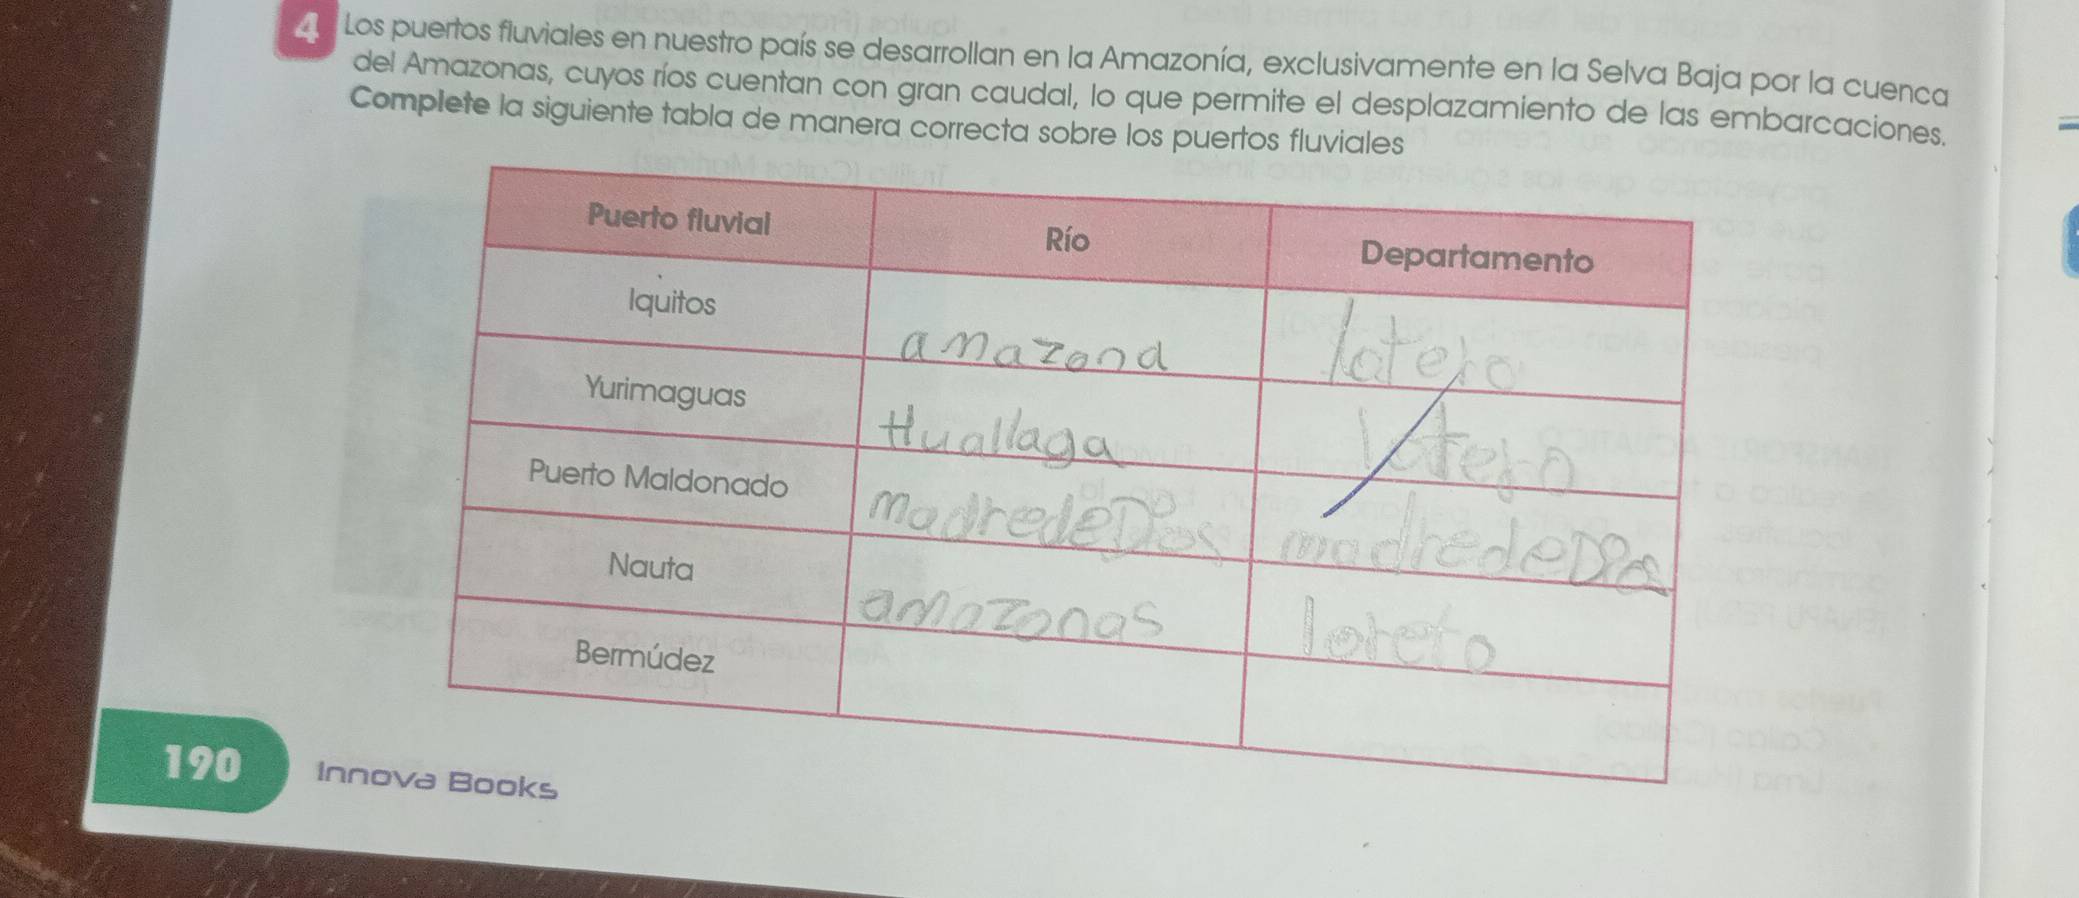 4 Los puertos fluviales en nuestro país se desarrollan en la Amazonía, exclusivamente en la Selva Baja por la cuenca
del Amazonas, cuyos ríos cuentan con gran caudal, lo que permite el desplazamiento de las embarcaciones.
Complete la siguiente tabla de manera correcta sobre los puertos fluviales
Puerto fluvial Río Departamento
Iquitos amazona lotero
Yurimaguas Huallaga lotero
Puerto Maldonado madredeDios madredeDios
Nauta amazonas loreto
Bermúdez
190 Innova Books